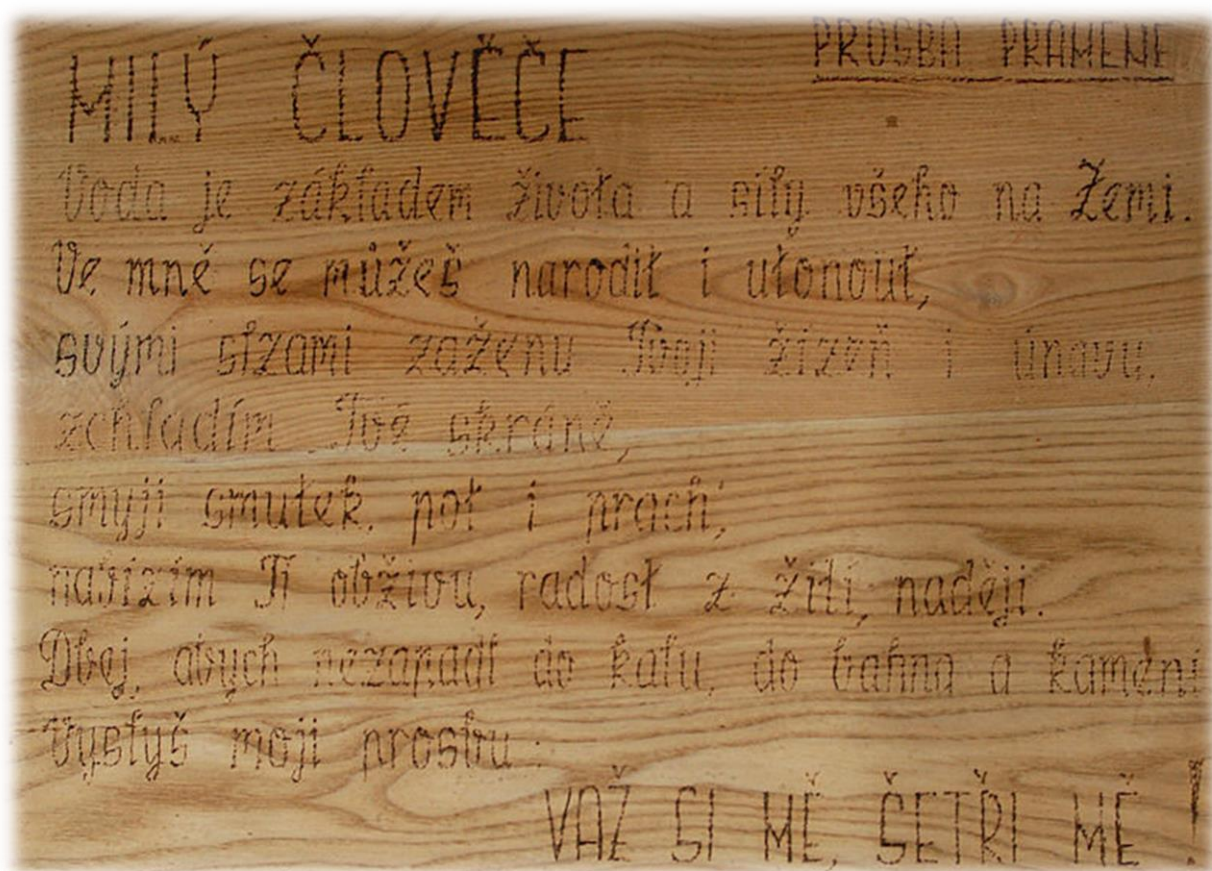 PROSBA PRAMENE
MILÝ ČLOVĚČE
Voda je základem života a síly všeho na Zemi.
Ve mně se můžeš narodit i utonout,
svými slzami zaženu Tvoji žízeň i únavu,
zchladím Tvé skráně,
smyji smutek, pot i prach,
nabízím Ti obživu, radost z žití, naději.
Dbej, abych nezapadl do kalu, do bahna a kamení
Vyslyš moji prosbu:
VAŽ SI MĚ, ŠETŘI MĚ!